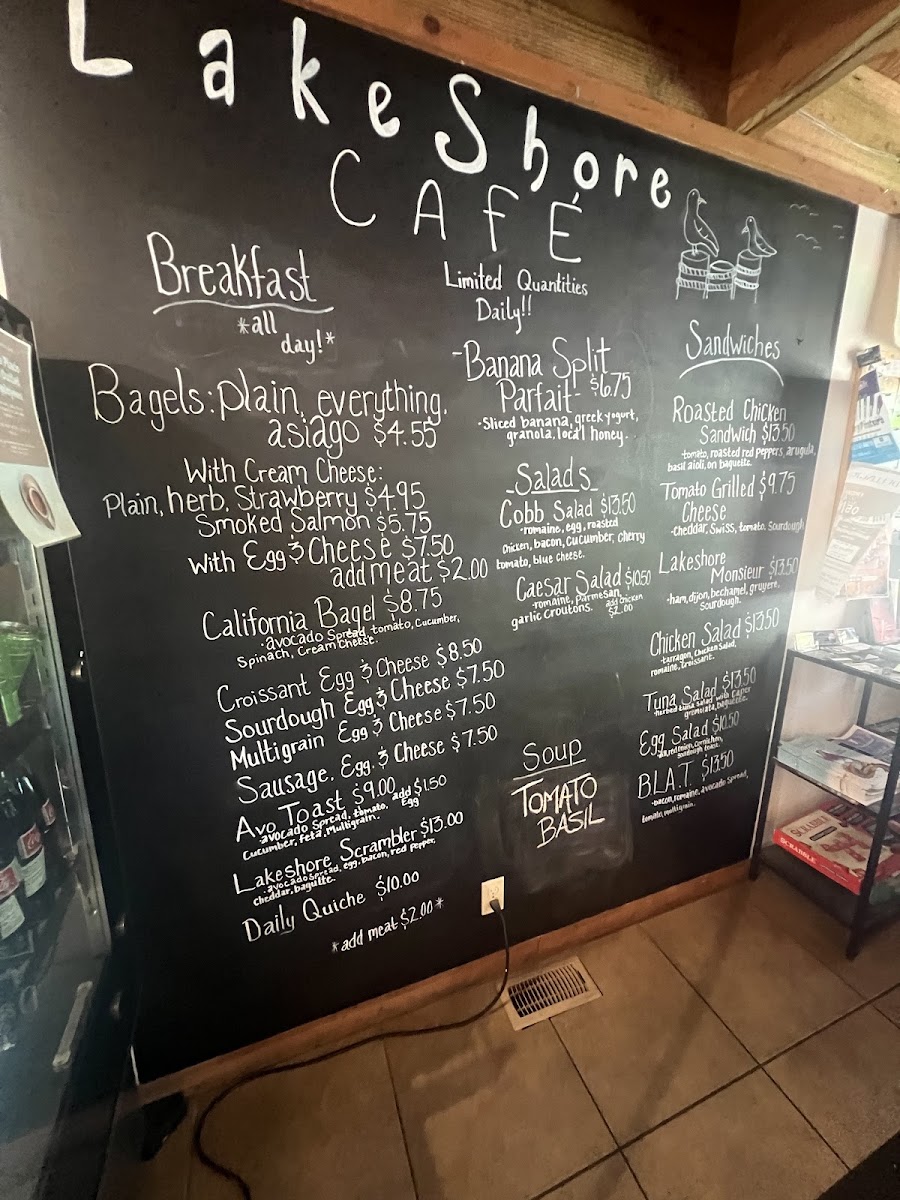 LakeShore
CAFÉ
Breakfast
*all
day!*
Bagels: plain, everything,
asiago $4.55
With Cream Cheese:
Plain, herb, Strawberry $4.95
Smoked Salmon $5.75
With Egg & Cheese $7.50
add meat $2.00
California Bagel $8.75
·avocado Spread, tomato, Cucumber,
Spinach, Cream Cheese.
Croissant Egg & Cheese $8.50
Sourdough Egg & Cheese $7.50
Multigrain Egg & Cheese $7.50
Sausage. Egg. & Cheese $7.50
Avo Toast $9.00 add $1.50
Egg
·avocado Spread, tomato,
Cucumber, feta, Multigrain.
Lakeshore Scrambler $13.00
·avocado Spread, egg, bacon, red pepper,
cheddar, baguette.
Daily Quiche $10.00
*add meat $2.00*
Limited Quantities
Daily!!
-Banana Split
Parfait- $6.75
·Sliced banana, greek yogurt,
granola, local honey·
Salads
Cobb Salad $13.50
·romaine, egg, roasted
Chicken, bacon, cucumber, cherry
tomato, blue cheese.
Caesar Salad $10.50
·romaine, Parmesan,
garlic Croutons.
add chicken
$2.00
Soup
TOMATO
BASIL
Sandwiches
Roasted Chicken
Sandwich $13.50
·tomato, roasted red peppers, arugula,
basil aioli, on baguette.
Tomato Grilled $9.75
Cheese
·Cheddar, Swiss, tomato, Sourdough
Lakeshore
Monsieur $13.50
·ham, dijon, bechamel, gruyere,
Sourdough.
Chicken Salad $13.50
·tarragon, Chicken Salad,
romaine, Croissant.
Tuna Salad $13.50
·herbed tuna salad with Caper
gremolata, baguette.
Egg Salad $10.50
red onion, Cornichon,
Sourdough toast.
BLAT $13.50
·bacon, romaine, avocado Spread,
tomato, multigrain.
SCRABBLE
SCRABBLE